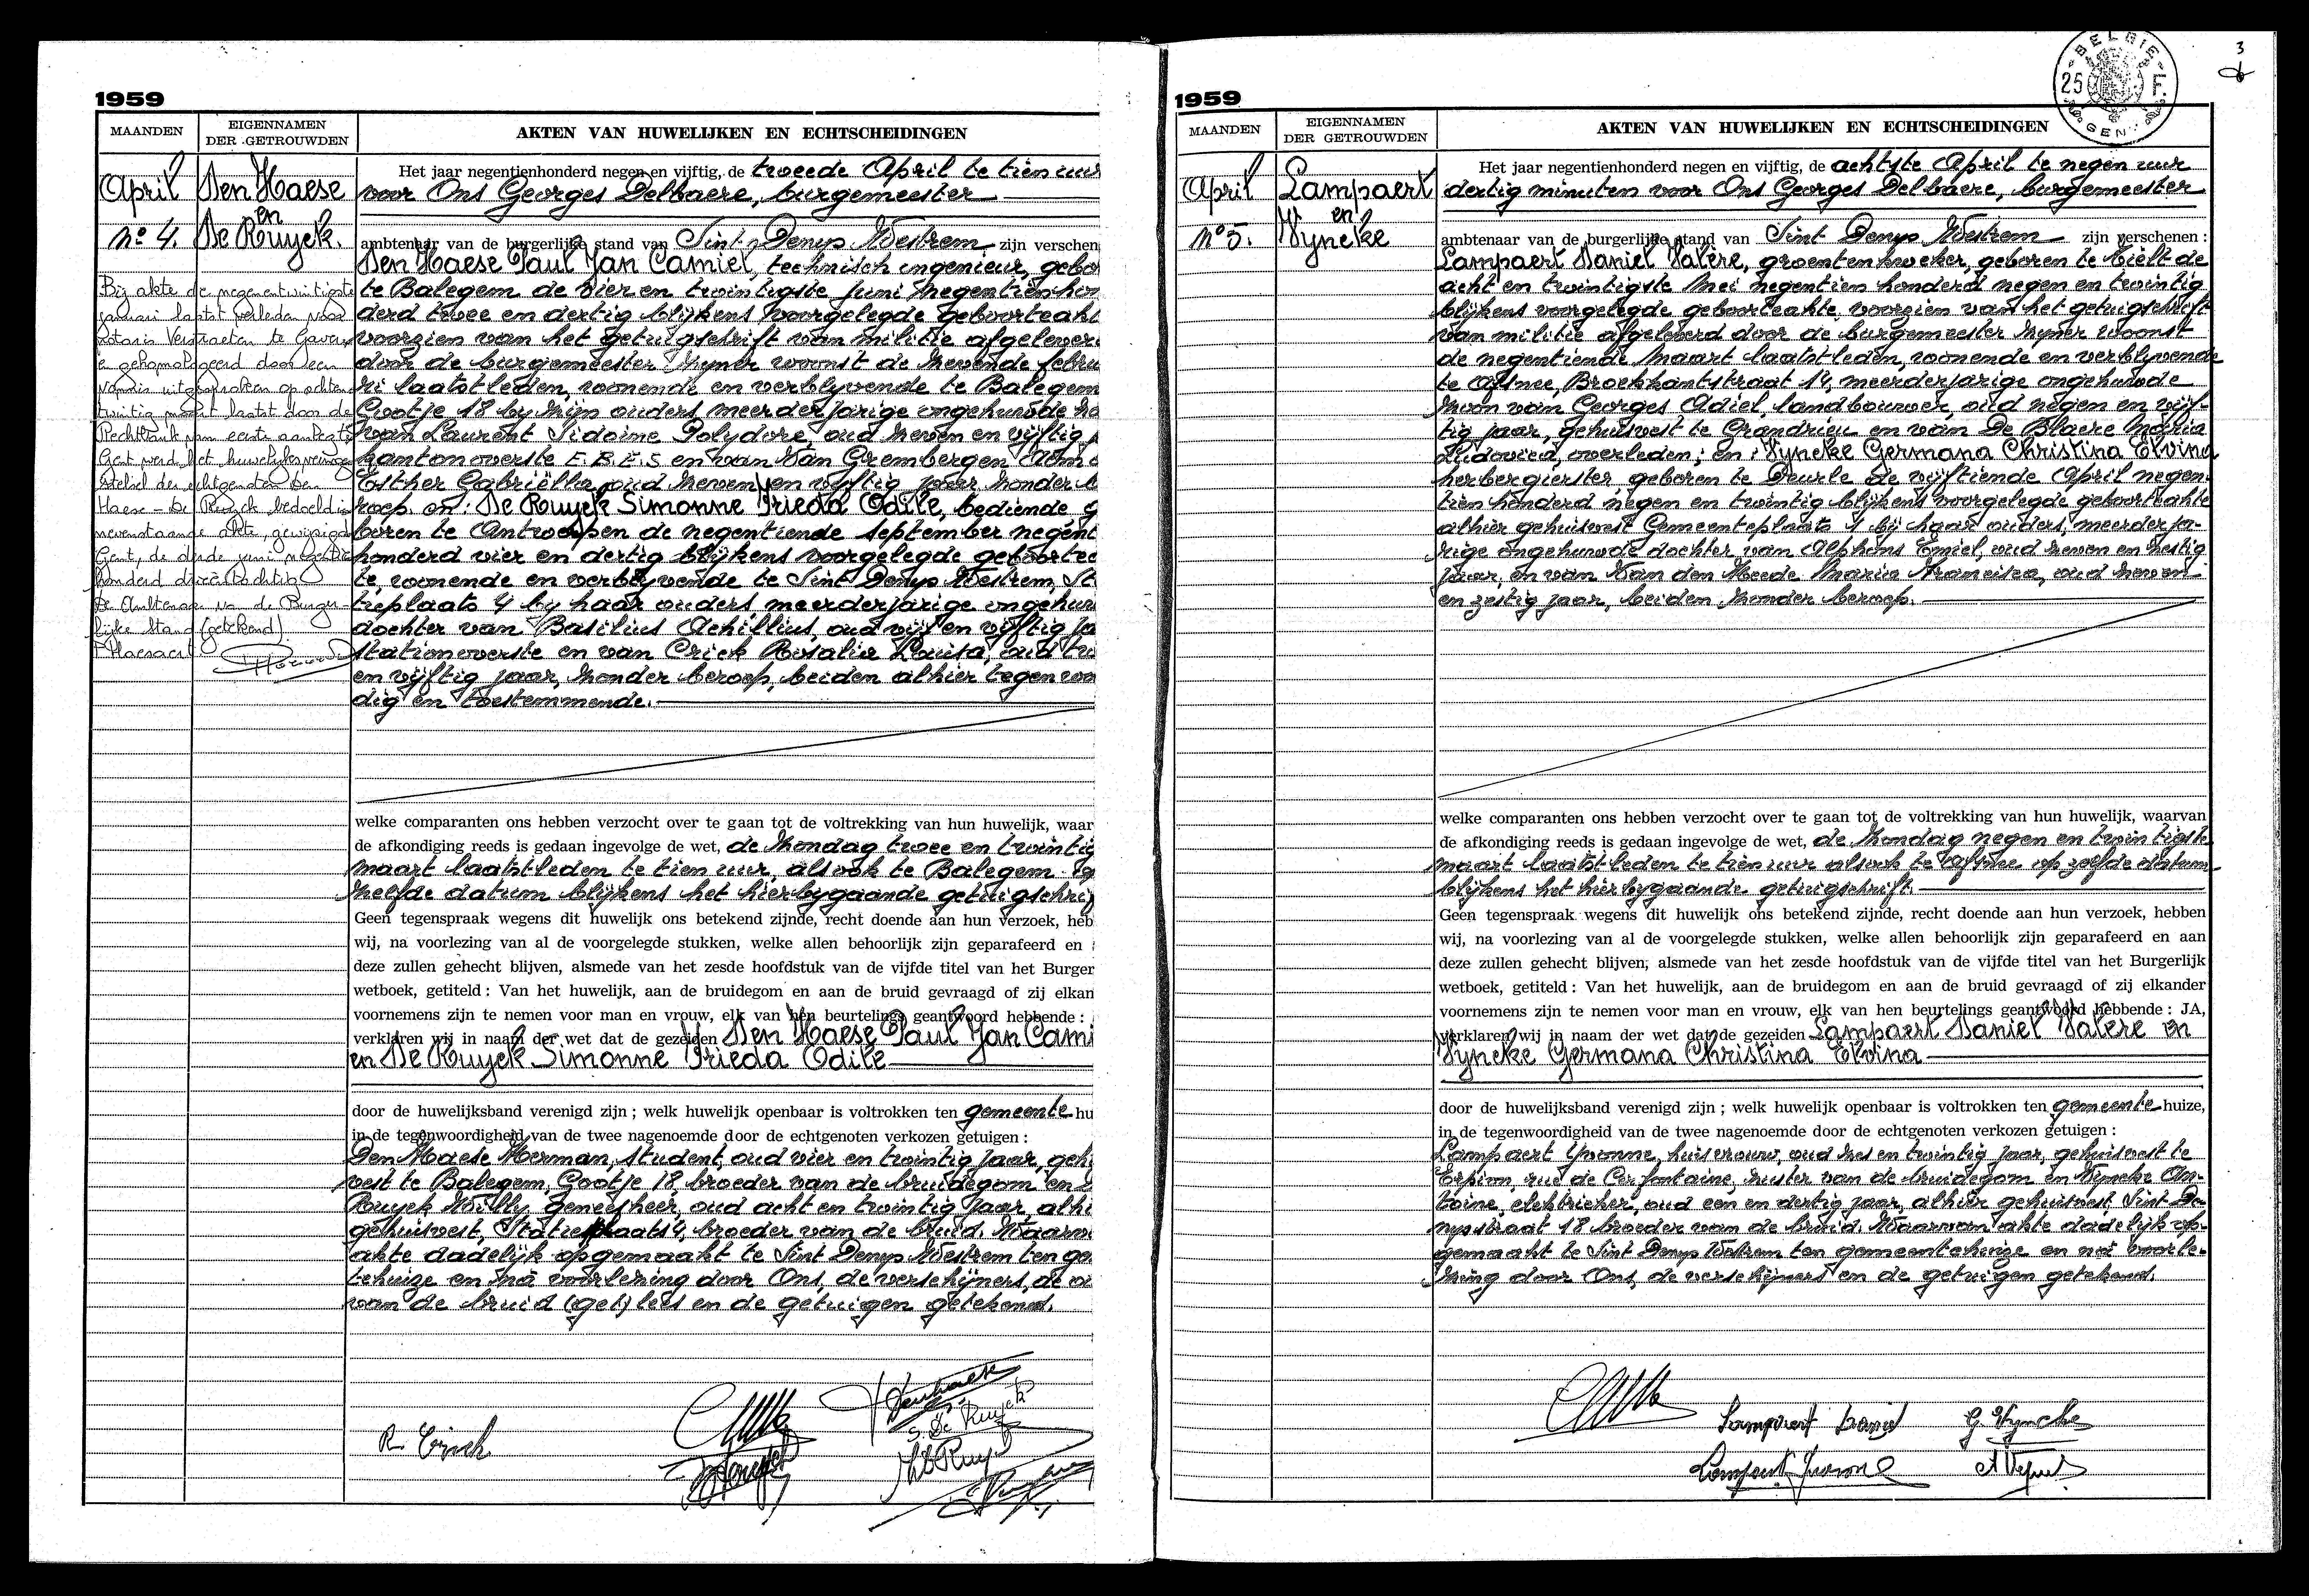 1959
MAANDEN
EIGENNAMEN
DER GETROUWDEN
AKTEN VAN HUWELIJKEN EN ECHTSCHEIDINGEN
April
Den Haese
en
De Ruyck.
No 4.
Bij akte de negenentwintigste
januari laatst verleden voor
notaris Verstraeten te Gavere
gehomologeerd door een
vonnis uitgesproken op achten
twintig maart laatst door de
Rechtbank van eerste aanleg te
Gent werd het huwelijksvermogen
stelsel der echtgenoten Den
Haese - De Ruyck bedoeld in
nevenstaande akte, gewijzigd
Gent, de derde juni negentien
honderd drieëntachtig
De Ambtenaar van de Burger-
lijke Stand (getekend)
Het jaar negentienhonderd negen en vijftig, de tweede April te tien uur
voor Ons Georges Delbaere, burgemeester
ambtenaar van de burgerlijke stand van Sint-Denys Westrem zijn verschen
Den Haese Paul Jan Camiel, technisch ingenieur, gebo
te Balegem de vier en twintigste juni negentien hon
derd twee en dertig blijkens voorgelegde geboorteakt
voorzien van het getuigschrift van militie afgelever
door de burgemeester zyner woonst de zevende febru
ri laatstleden, wonende en verblyvende te Balegem
Gootje 18 by zijn ouders, meerderjarige ongehuwde zo
van Laurent Sidoine Polydore, oud zeven en vijftig j
kantonoverste E.B.E.S en van Van Grembergen Alma
Esther Gabriëlla, oud zeven en vyftig jaar zonder b
roep. en: De Ruyck Simonne Frieda Odile, bediende g
boren te Antwerpen de negentiende september negent
honderd vier en dertig blijkens voorgelegde geboortea
te, wonende en verblyvende te Sint Denys Westrem, St
tieplaats 4 by haar ouders meerderjarige ongehuw
dochter van Basilius Achillius, oud vijf en vijftig ja
stationoverste en van Criek Rosalia Louisa, oud tw
en vijftig jaar, zonder beroep, beiden alhier tegenwoo
dig en toestemmende.
welke comparanten ons hebben verzocht over te gaan tot de voltrekking van hun huwelijk, waar
de afkondiging reeds is gedaan ingevolge de wet, de zondag twee en twintig
maart laatstleden te tien uur, alsook te Balegem op
zelfde datum blijkens het hierbygaande getuigschrif
Geen tegenspraak wegens dit huwelijk ons betekend zijnde, recht doende aan hun verzoek, heb
wij, na voorlezing van al de voorgelegde stukken, welke allen behoorlijk zijn geparafeerd en
deze zullen gehecht blijven, alsmede van het zesde hoofdstuk van de vijfde titel van het Burger
wetboek, getiteld : Van het huwelijk, aan de bruidegom en aan de bruid gevraagd of zij elkan
voornemens zijn te nemen voor man en vrouw, elk van hen beurtelings geantwoord hebbende :
verklaren wij in naam der wet dat de gezeiden Den Haese Paul Jan Cami
en De Ruyck Simonne Frieda Odile
door de huwelijksband verenigd zijn ; welk huwelijk openbaar is voltrokken ten gemeente hu
in de tegenwoordigheid van de twee nagenoemde door de echtgenoten verkozen getuigen :
Den Haese Herman, student, oud vier en twintig jaar, geh
vest te Balegem, Gootje 18, broeder van de bruidegom en
Ruyck Willy, geneesheer, oud acht en twintig jaar, alhi
gehuisvest, Statieplaats 4, broeder van de bruid. Waarva
akte dadelijk opgemaakt te Sint Denys Westrem ten ge
tehuize en na voorlezing door Ons, de verschijners, de
van de bruid (get) lees en de getuigen getekend.
R. Criek
S. De Ruyck
1959
3
BELGIE
25 F.
GEN
MAANDEN
EIGENNAMEN
DER GETROUWDEN
AKTEN VAN HUWELIJKEN EN ECHTSCHEIDINGEN
April
Lampaert
en
Vyncke
No 5.
Het jaar negentienhonderd negen en vijftig, de achtste April te negen uur
dertig minuten voor Ons Georges Delbaere, burgemeester
ambtenaar van de burgerlijke stand van Sint Denys Westrem zijn verschenen :
Lampaert Daniel Valère, groentenkweker, geboren te Tielt de
acht en twintigste Mei negentien honderd negen en twintig
blijkens voorgelegde geboorteakte, voorzien van het getuigschrift
van militie afgeleverd door de burgemeester zyner woonst
de negentiende Maart laatstleden, wonende en verblyvende
te Afsnee, Broekkantstraat 14, meerderjarige ongehuwde
zoon van Georges Adiel, landbouwer, oud negen en vijf-
tig jaar, gehuisvest te Grandrieu en van De Blaere Maria
Ludovica, overleden; en: Vyncke Germana Christina Elvina
herbergierster geboren te Deurle de vijftiende April negen-
tien honderd negen en twintig blijkens voorgelegde geboorteakte
alhier gehuisvest Gemeenteplaats 1 bij haar ouders, meerderja-
rige ongehuwde dochter van Alphons Emiel, oud zeven en zestig
jaar, en van Van den Heede Maria Francisca, oud zeven
en zestig jaar, beiden zonder beroep.
welke comparanten ons hebben verzocht over te gaan tot de voltrekking van hun huwelijk, waarvan
de afkondiging reeds is gedaan ingevolge de wet, de zondag negen en twintigste
maart laatstleden te tien uur alsook te Afsnee op zelfde datum
blijkens het hierbygaande getuigschrift.
Geen tegenspraak wegens dit huwelijk ons betekend zijnde, recht doende aan hun verzoek, hebben
wij, na voorlezing van al de voorgelegde stukken, welke allen behoorlijk zijn geparafeerd en aan
deze zullen gehecht blijven, alsmede van het zesde hoofdstuk van de vijfde titel van het Burgerlijk
wetboek, getiteld : Van het huwelijk, aan de bruidegom en aan de bruid gevraagd of zij elkander
voornemens zijn te nemen voor man en vrouw, elk van hen beurtelings geantwoord hebbende : JA,
verklaren wij in naam der wet dat de gezeiden Lampaert Daniel Valère en
Vyncke Germana Christina Elvina
door de huwelijksband verenigd zijn ; welk huwelijk openbaar is voltrokken ten gemeente huize,
in de tegenwoordigheid van de twee nagenoemde door de echtgenoten verkozen getuigen :
Lampaert Yvonne, huisvrouw, oud zes en twintig jaar, gehuisvest te
Erpion, rue de Cerfontaine, zuster van de bruidegom en Vyncke An-
toine, elektrieker, oud een en dertig jaar, alhier gehuisvest, Sint De-
nysstraat 18 broeder van de bruid. Waarvan akte dadelijk op-
gemaakt te Sint Denys Westrem ten gemeentehuize en na voorle-
zing door Ons, de verschijners en de getuigen getekend.
Lampaert Daniel
G Vyncke
Lampaert Yvonne